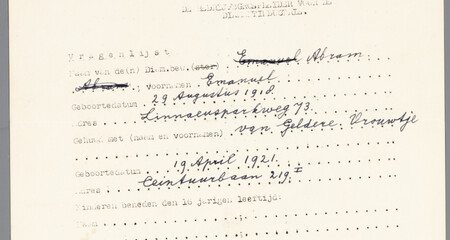 Vragenlijst
Naam van de(n) Dien.bew.(ster) Emanuel Abram
Abram; voornamen Emanuel
Geboortedatum 29 Augustus 1918.
Adres Linnaeusparkweg 73.
Gehuwd met (naam en voornamen) van Geldere. Vrouwtje
Geboortedatum 19 April 1921.
Adres Ceintuurbaan 219 I
Kinderen beneden den 16 jarigen leeftijd: